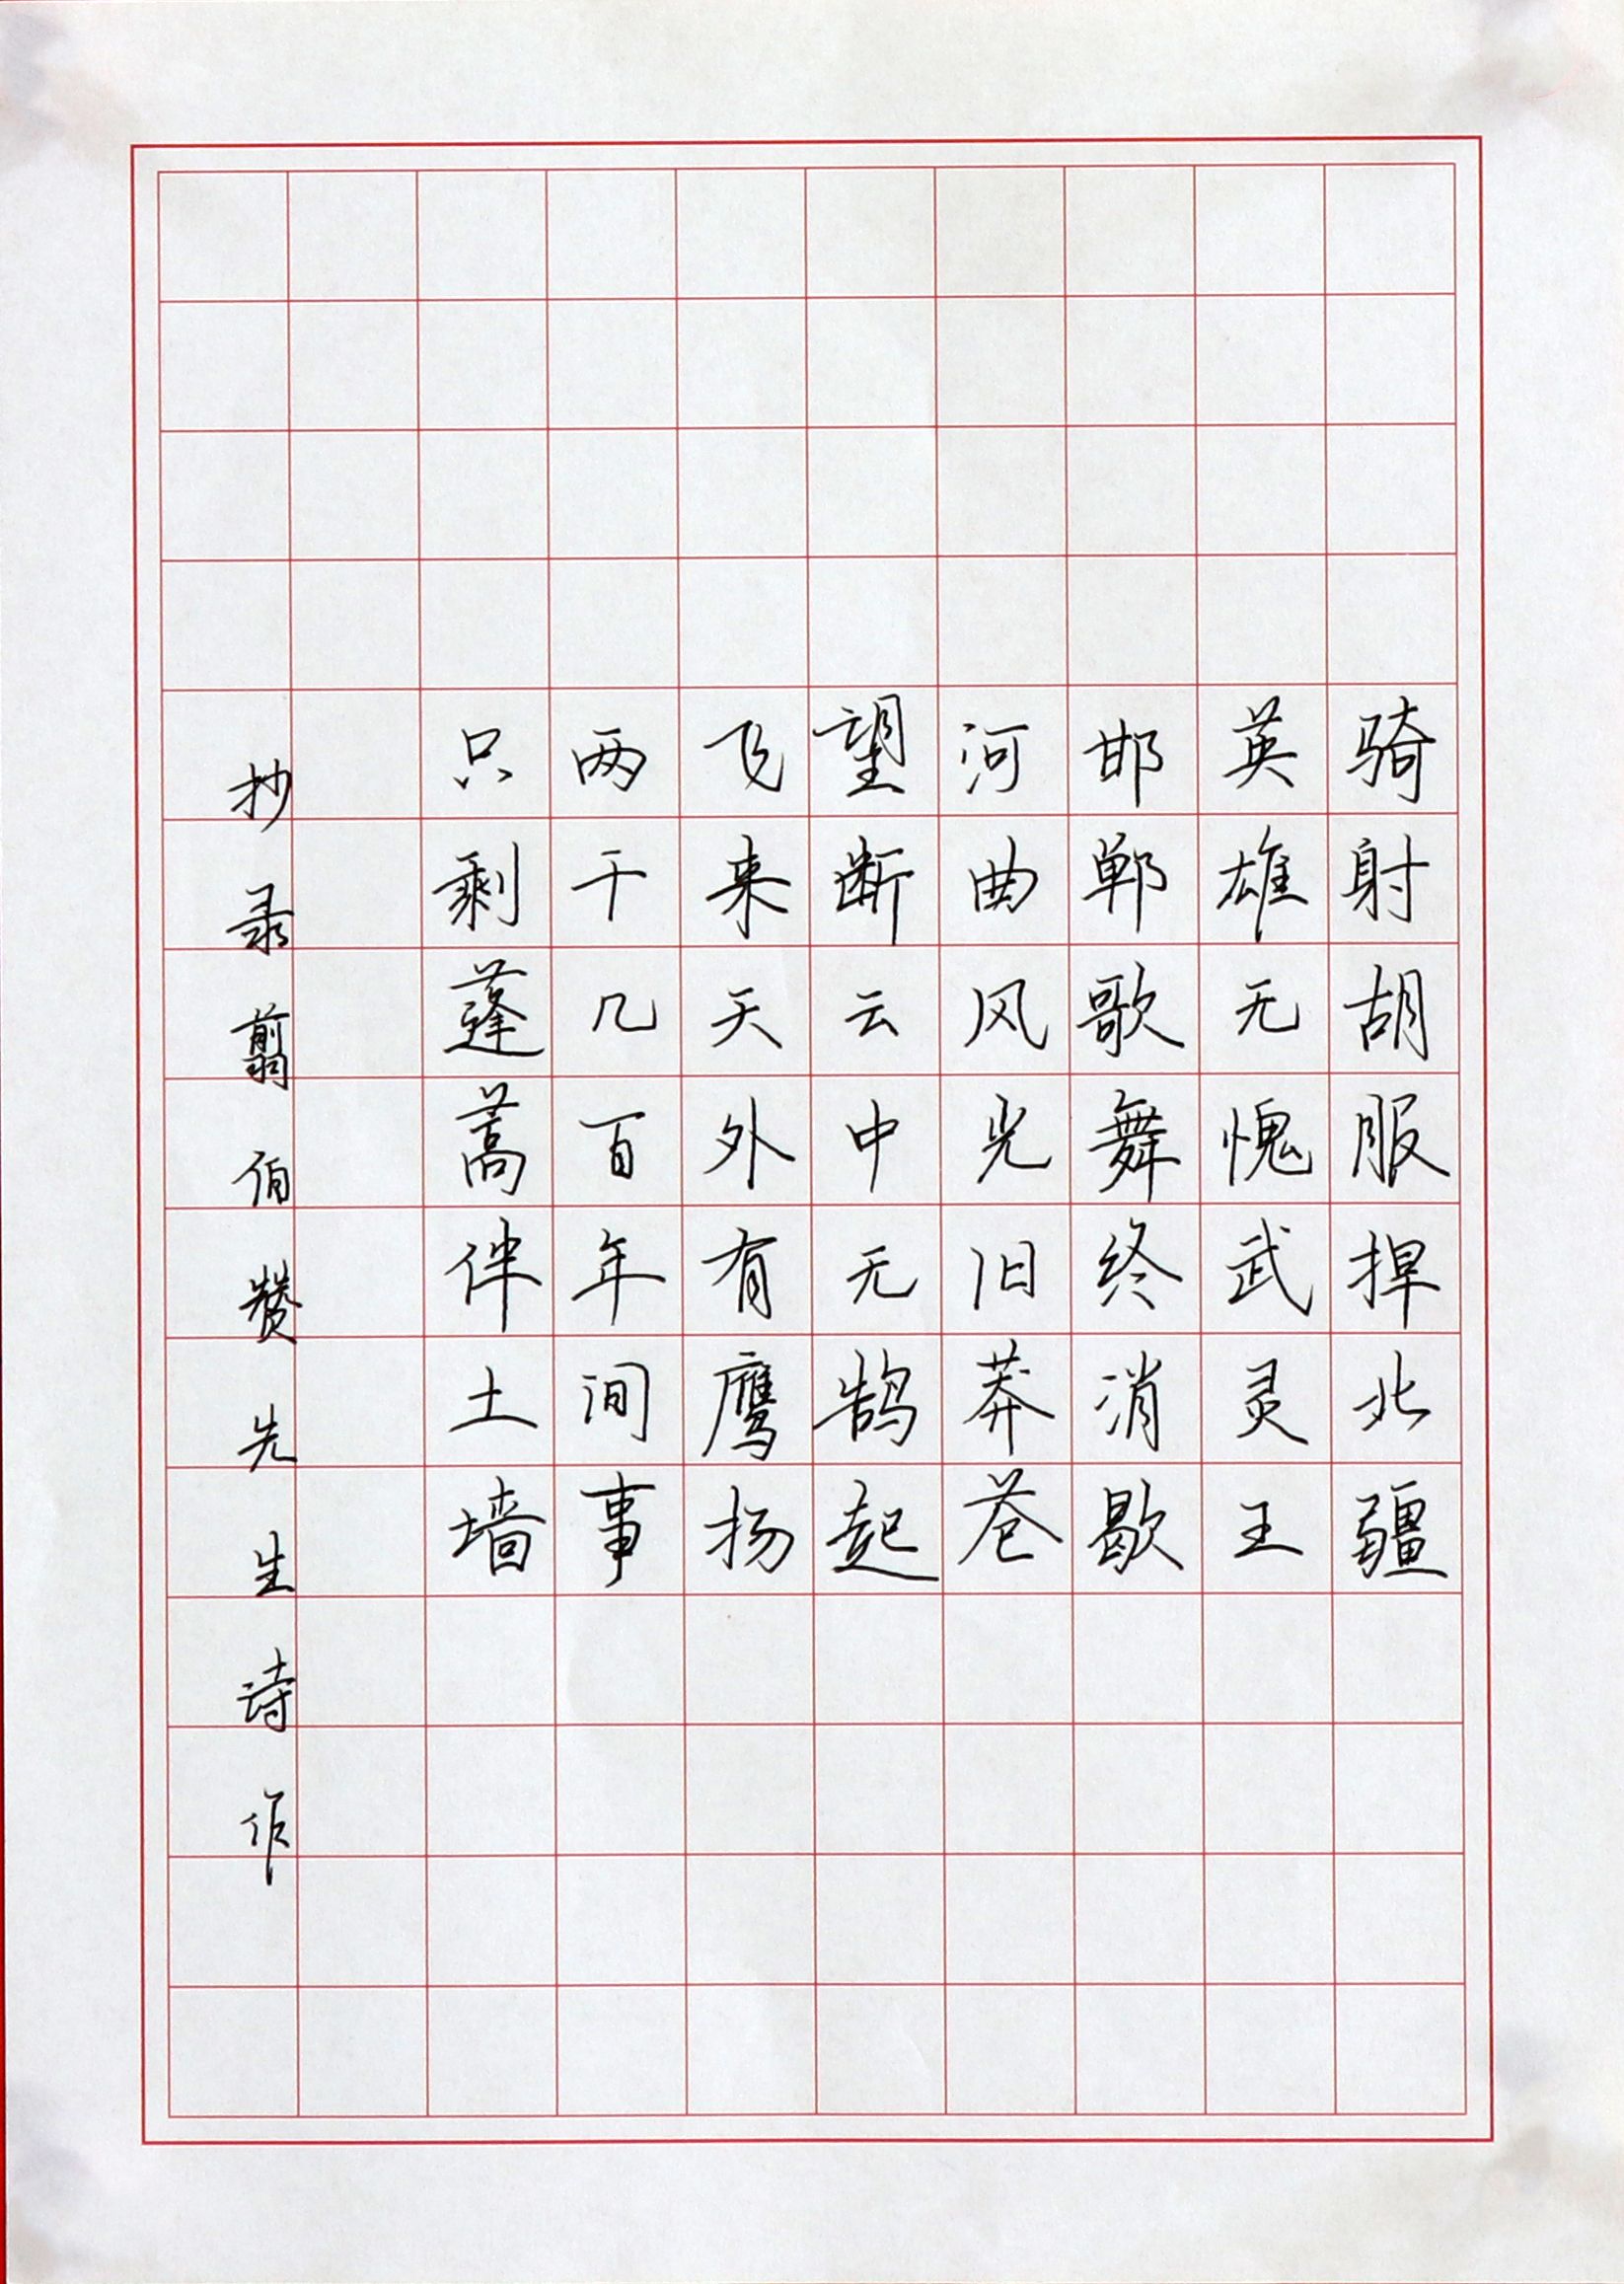 骑射胡服捍北疆
英雄无愧武灵王
邯郸歌舞终消歇
河曲风光旧莽苍
望断云中无鹄起
飞来天外有鹰扬
两千几百年间事
只剩蓬蒿伴土墙
抄录翦伯赞先生诗作